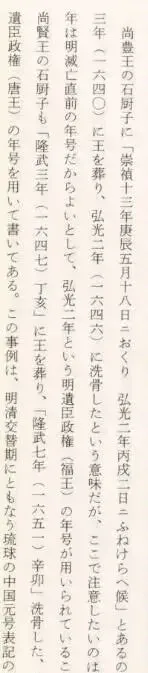 尚豊王の石厨子に「崇禎十三年庚辰五月十八日ニおくり　弘光二年丙戌二日ニふねけらへ候」とあるの
三年（一六四〇）に王を葬り、弘光二年（一六四六）に洗骨したという意味だが、ここで注意したいのは
年は明滅亡直前の年号だからよいとして、弘光二年という明遺臣政権（福王）の年号が用いられているこ
尚賢王の石厨子も「隆武三年（一六四七）丁亥」に王を葬り、「隆武七年（一六五一）辛卯」洗骨した、
遺臣政権（唐王）の年号を用いて書いてある。この事例は、明清交替期にともなう琉球の中国元号表記の